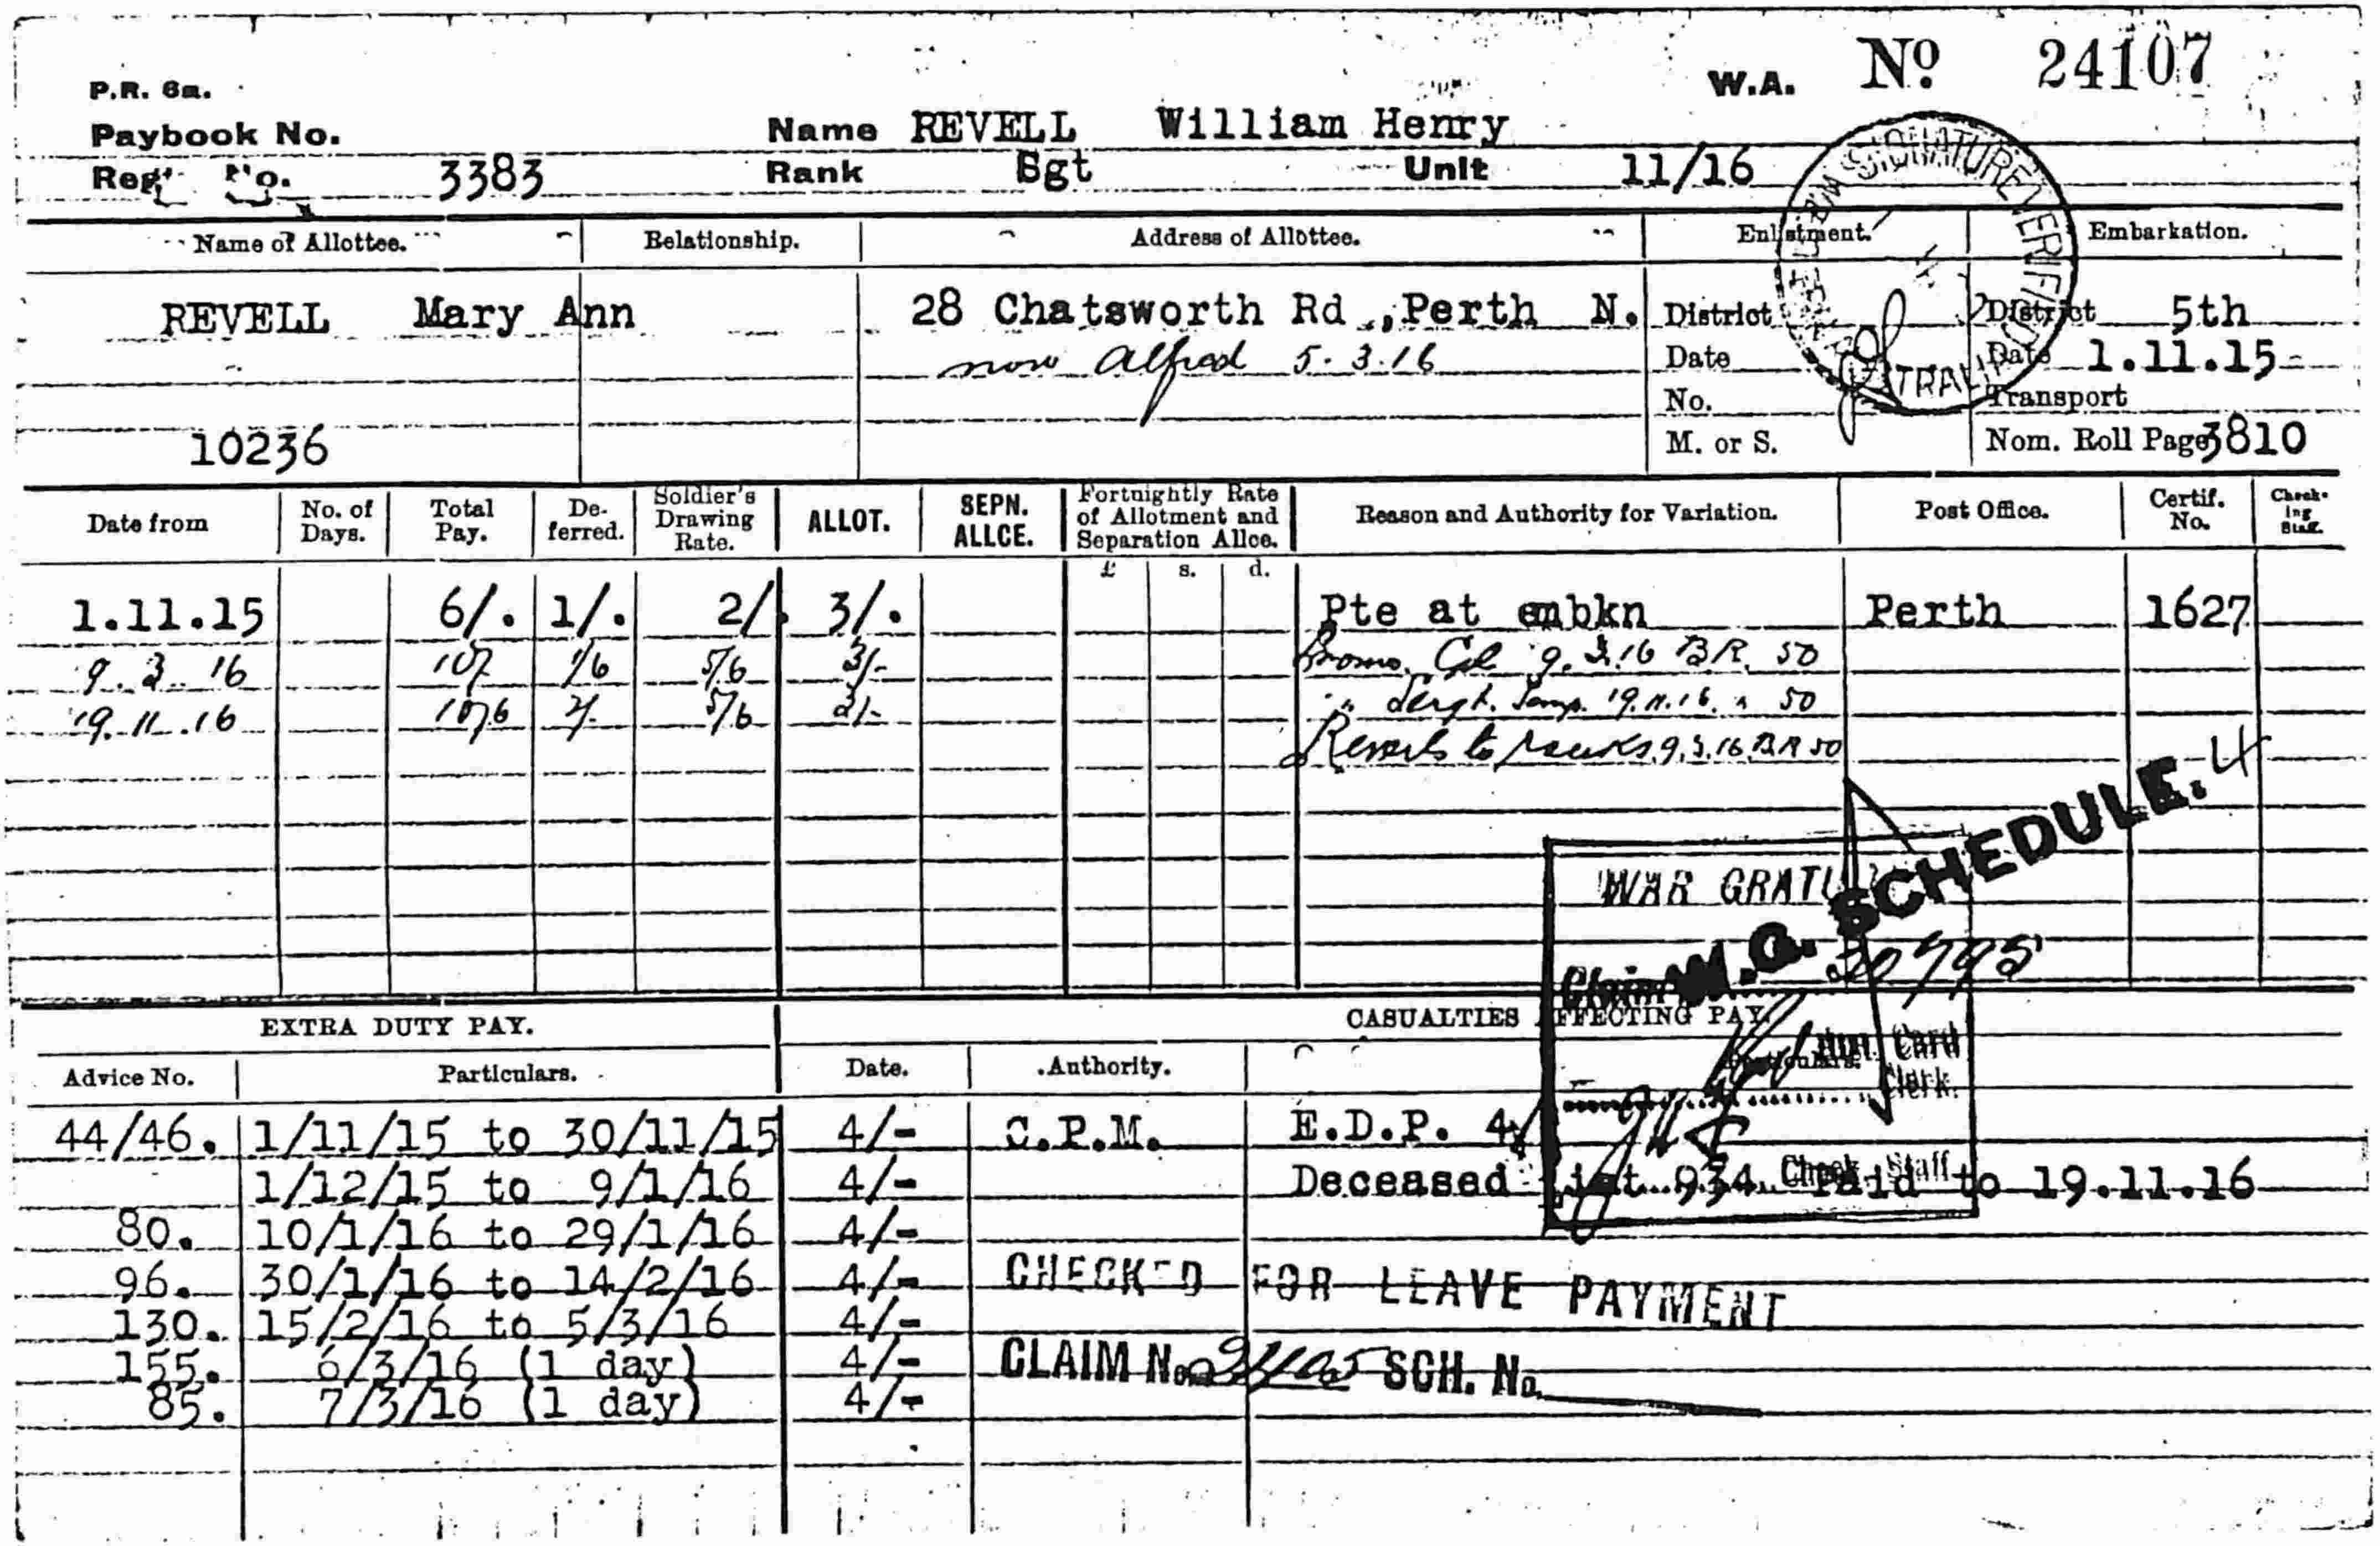 W.A. Nº 24107
P.R. 6a.
Paybook No. Name REVELL William Henry
Regt No. 3383 Rank Sgt Unit 11/16
Name of Allottee. Relationship. Address of Allottee. Enlistment. Embarkation.
REVELL Mary Ann 28 Chatsworth Rd., Perth N. District District 5th
now Alfred 5.3.16 Date Date 1.11.15
No. Transport
10236 M. or S. Nom. Roll Page 3810
Date from No. of Days. Total Pay. Deferred. Soldier's Drawing Rate. ALLOT. SEPN. ALLCE. Fortnightly Rate of Allotment and Separation Allce. Reason and Authority for Variation. Post Office. Certif. No. Checking Staff.
£ s. d.
1.11.15 6/. 1/. 2/. 3/. Pte at embkn Perth 1627
9.3.16 10/ 1/6 5/6 3/- Promo. Cpl 9.3.16 BR. 50
19.11.16 10/6 2/- 5/6 3/- " Sergt. Temp. 19.11.16 " 50
Reverts to ranks 9.3.16 BR 50
W.G. SCHEDULE. 4
WAR
30795
EXTRA DUTY PAY. CASUALTIES AFFECTING PAY.
Advice No. Particulars. Date. Authority. Particulars.
Card
Clerk.
44/46. 1/11/15 to 30/11/15 4/- C.P.M. E.D.P. 4/
1/12/15 to 9/1/16 4/- Deceased List 934 Paid to 19.11.16
Check Staff
80. 10/1/16 to 29/1/16 4/-
96. 30/1/16 to 14/2/16 4/- CHECKED FOR LEAVE PAYMENT
130. 15/2/16 to 5/3/16 4/-
155. 6/3/16 (1 day) 4/- CLAIM No. SCH. No.
85. 7/3/16 (1 day) 4/-